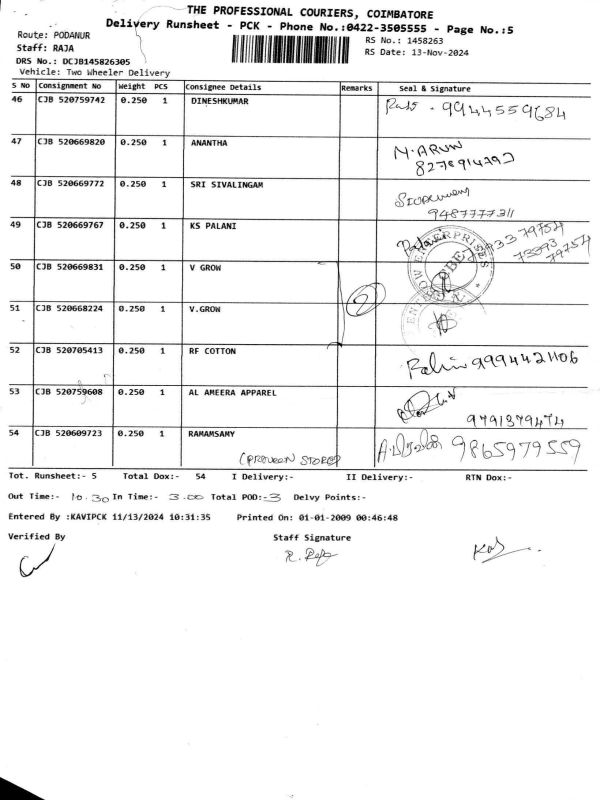 THE PROFESSIONAL COURIERS, COIMBATORE
Delivery Runsheet - PCK - Phone No.:0422-3505555 - Page No.:5
Route: PODANUR
RS No.: 1458263
Staff: RAJA
RS Date: 13-Nov-2024
DRS No.: DCJB145826305
Vehicle: Two Wheeler Delivery
S No Consignment No Weight PCS Consignee Details Remarks Seal & Signature
46 CJB 520759742 0.250 1 DINESHKUMAR 9944559684
47 CJB 520669820 0.250 1 ANANTHA M.ARUN
48 CJB 520669772 0.250 1 SRI SIVALINGAM
9487777311
49 CJB 520669767 0.250 1 KS PALANI
50 CJB 520669831 0.250 1 V GROW 2
51 CJB 520668224 0.250 1 V.GROW
52 CJB 520705413 0.250 1 RF COTTON 9994421106
53 CJB 520759608 0.250 1 AL AMEERA APPAREL
9791379474
54 CJB 520609723 0.250 1 RAMAMSAMY 9865979559
(PRAVEEN STORE)
Tot. Runsheet:- 5 Total Dox:- 54 I Delivery:- II Delivery:- RTN Dox:-
Out Time:- 10.30 In Time:- 3.00 Total POD:- 3 Delvy Points:-
Entered By :KAVIPCK 11/13/2024 10:31:35 Printed On: 01-01-2009 00:46:48
Verified By Staff Signature
R. Raja